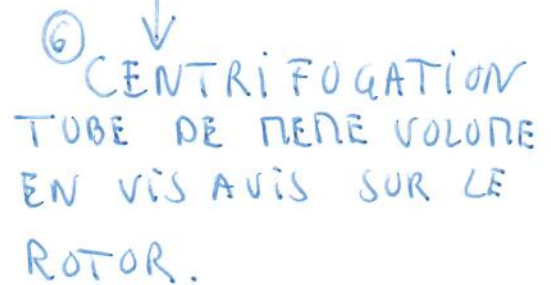 ⑥ ↓
CENTRiFUGATiON
TUBE DE MEME VOLUME
EN ViS AViS SUR LE
ROTOR.